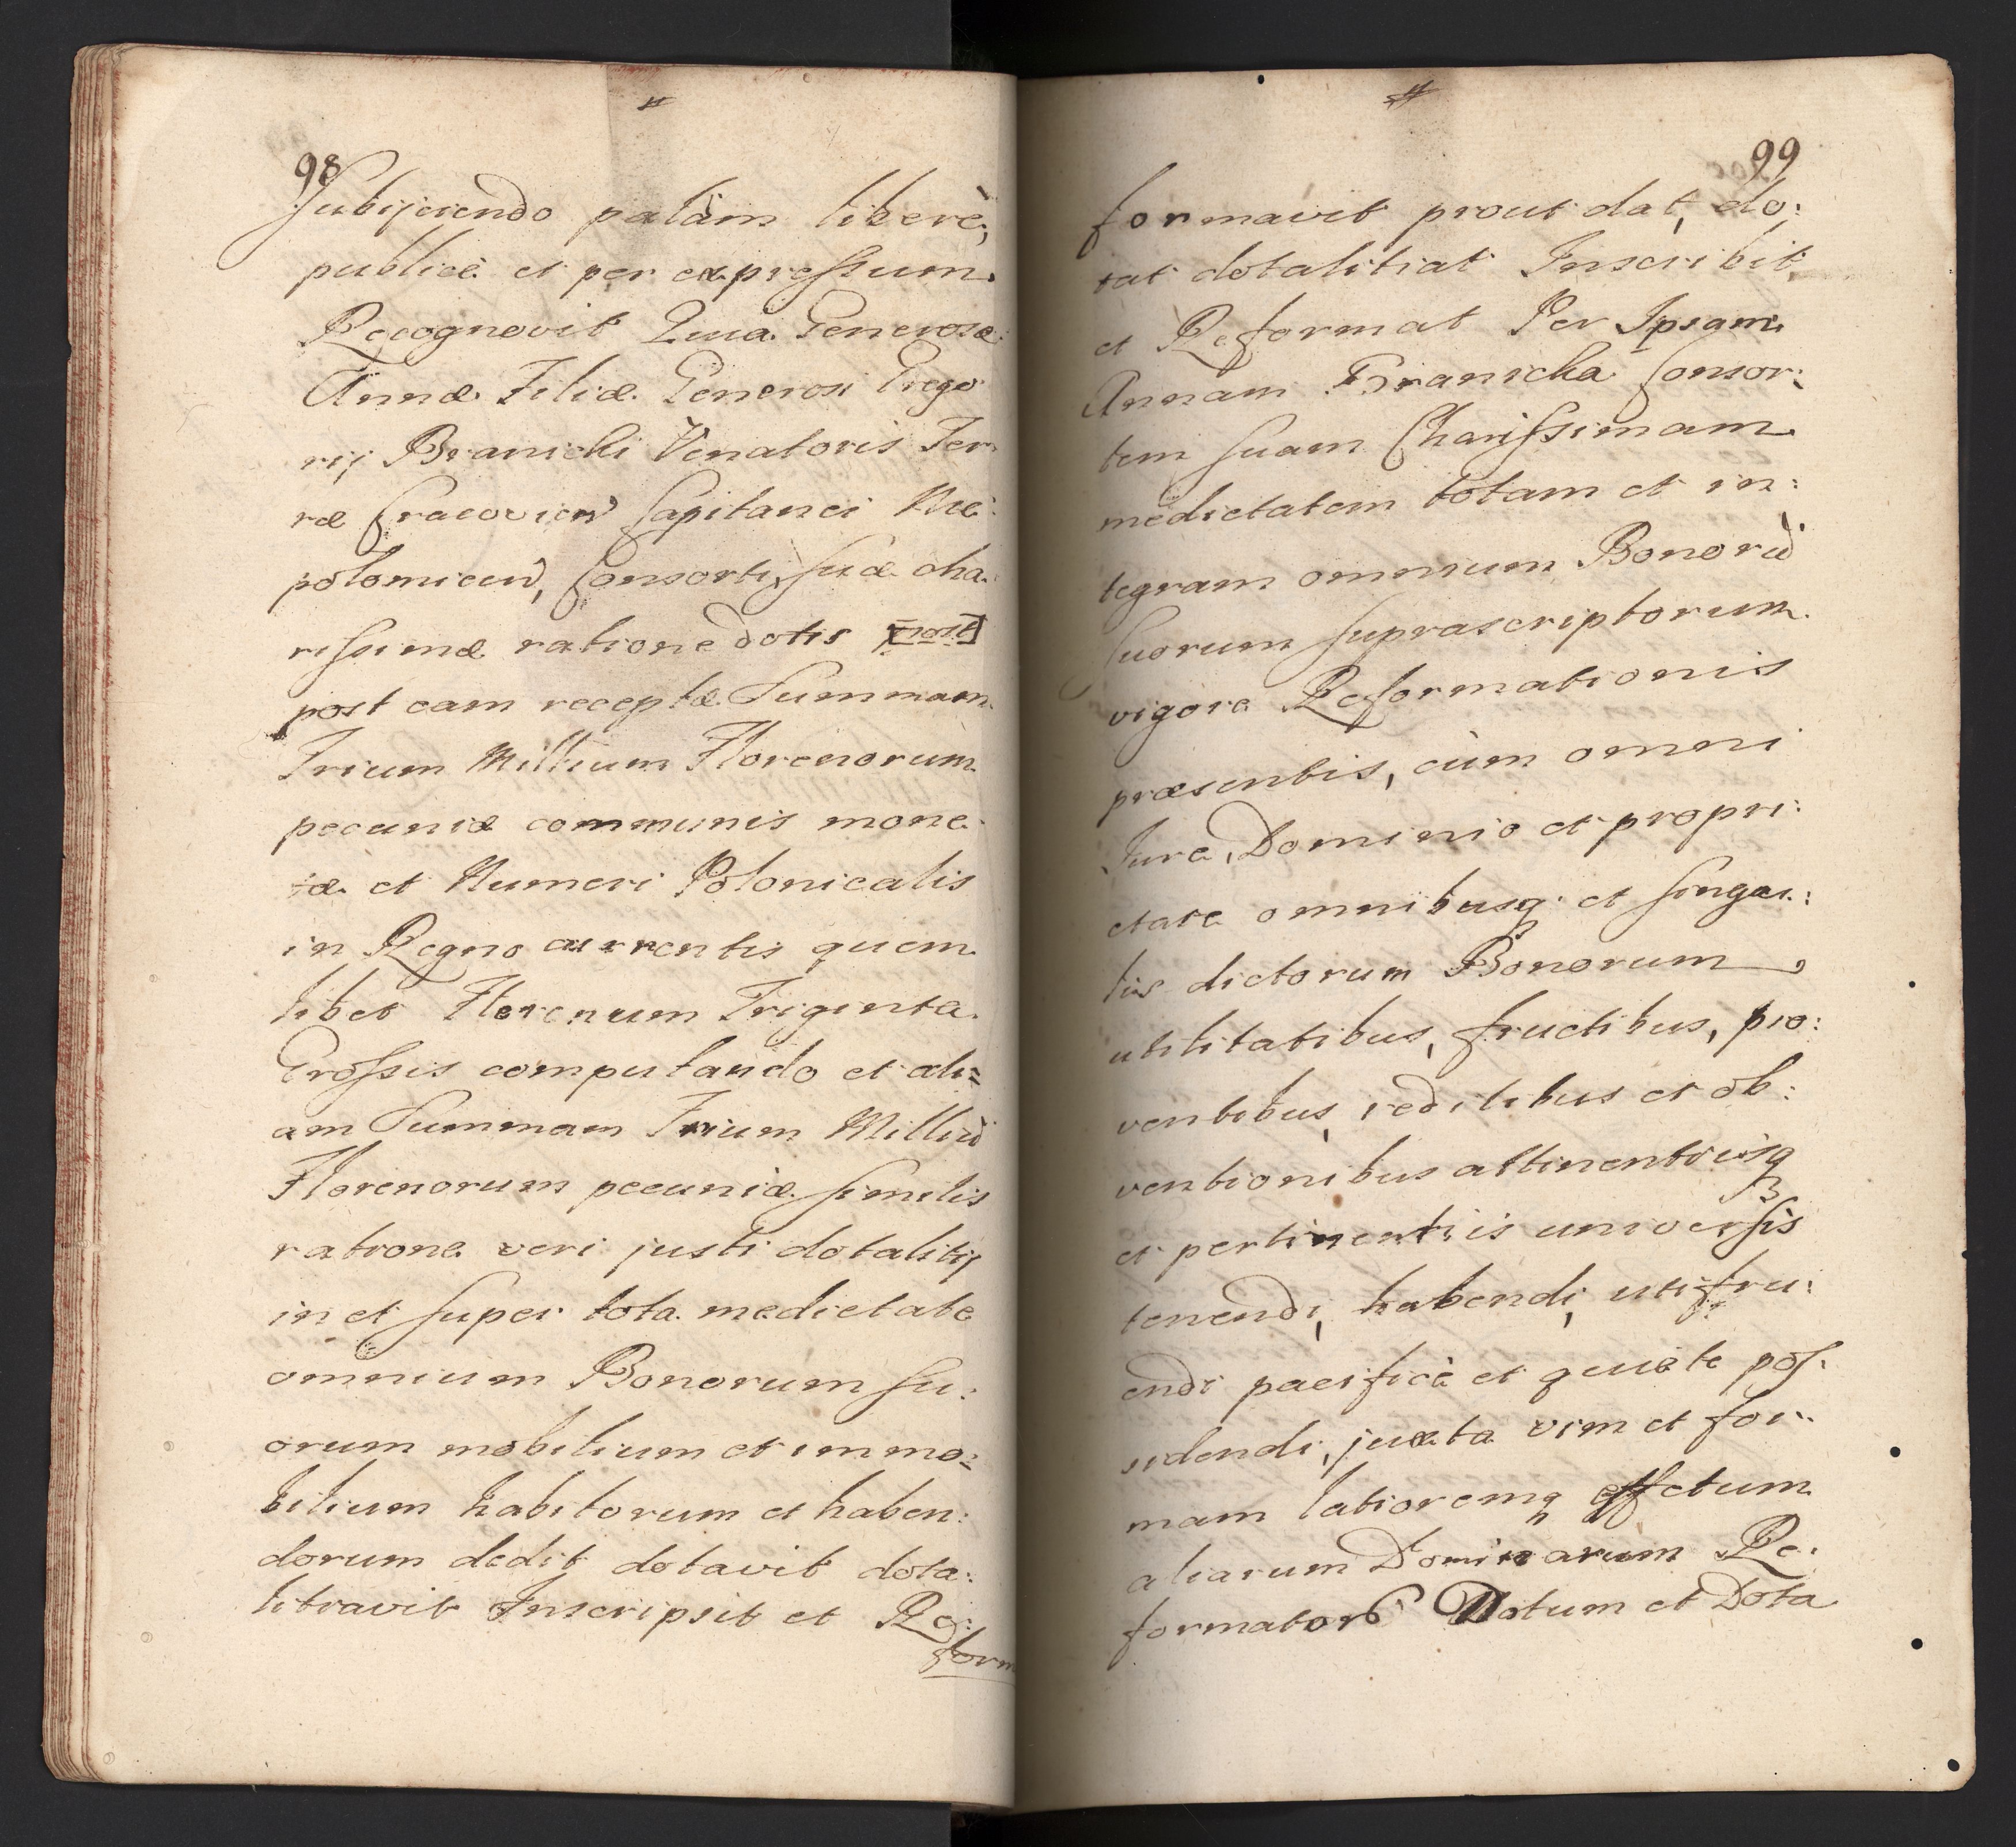 98
Subijciendo palàm liberè,
publicè et per expressum
Recognovit Quia Generosæ
Annæ Filiæ Generosi Grego
rij Branicki Venatoris Ter
ræ Cracovien Capitanei Nie
polomicen, Consorti suæ cha:
rissimæ ratione dotis [post]
post eam receptæ Summam
Trium Millium Florenorum
pecuniæ communis mone
tæ et Numeri Polonicalis
in Regno currentis quem
libet Florenum Triginta
Grossis computando et ali=
am Summam Trium Milliū
Florenorum pecuniæ similis
ratione veri justi dotalitij
in et super tota medietate
omnium Bonorum su:
orum mobilium et immo:
bilium habitorum et haben:
dorum dedit, dotavit dota:
litiavit Inscripsit et Re:
form
99
formavit prout dat, do:
tat dotalitiat Inscribit
et Reformat Per Ipsam
Annam Branicka Consor:
tem suam Charissimam
medietatem totam et in:
tegram omnium Bonorū
suorum suprascriptorum
vigore Reformationis
præsentis, cùm omni
Jure, Dominio et propri:
etate omnibusq; et singu:
lis dictorum Bonorum,
utilitatibus, fructibus, pro:
ventibus, reditibus et ob:
ventionibus attinentiisq3
et pertinentiis universis
tenendi, habendi, utifru:
endi pacificè et quiete pos:
sidendi, juxta vim et for:
mam latioremq effectum
aliarum Dominarum Re:
formator Dotum et Dota